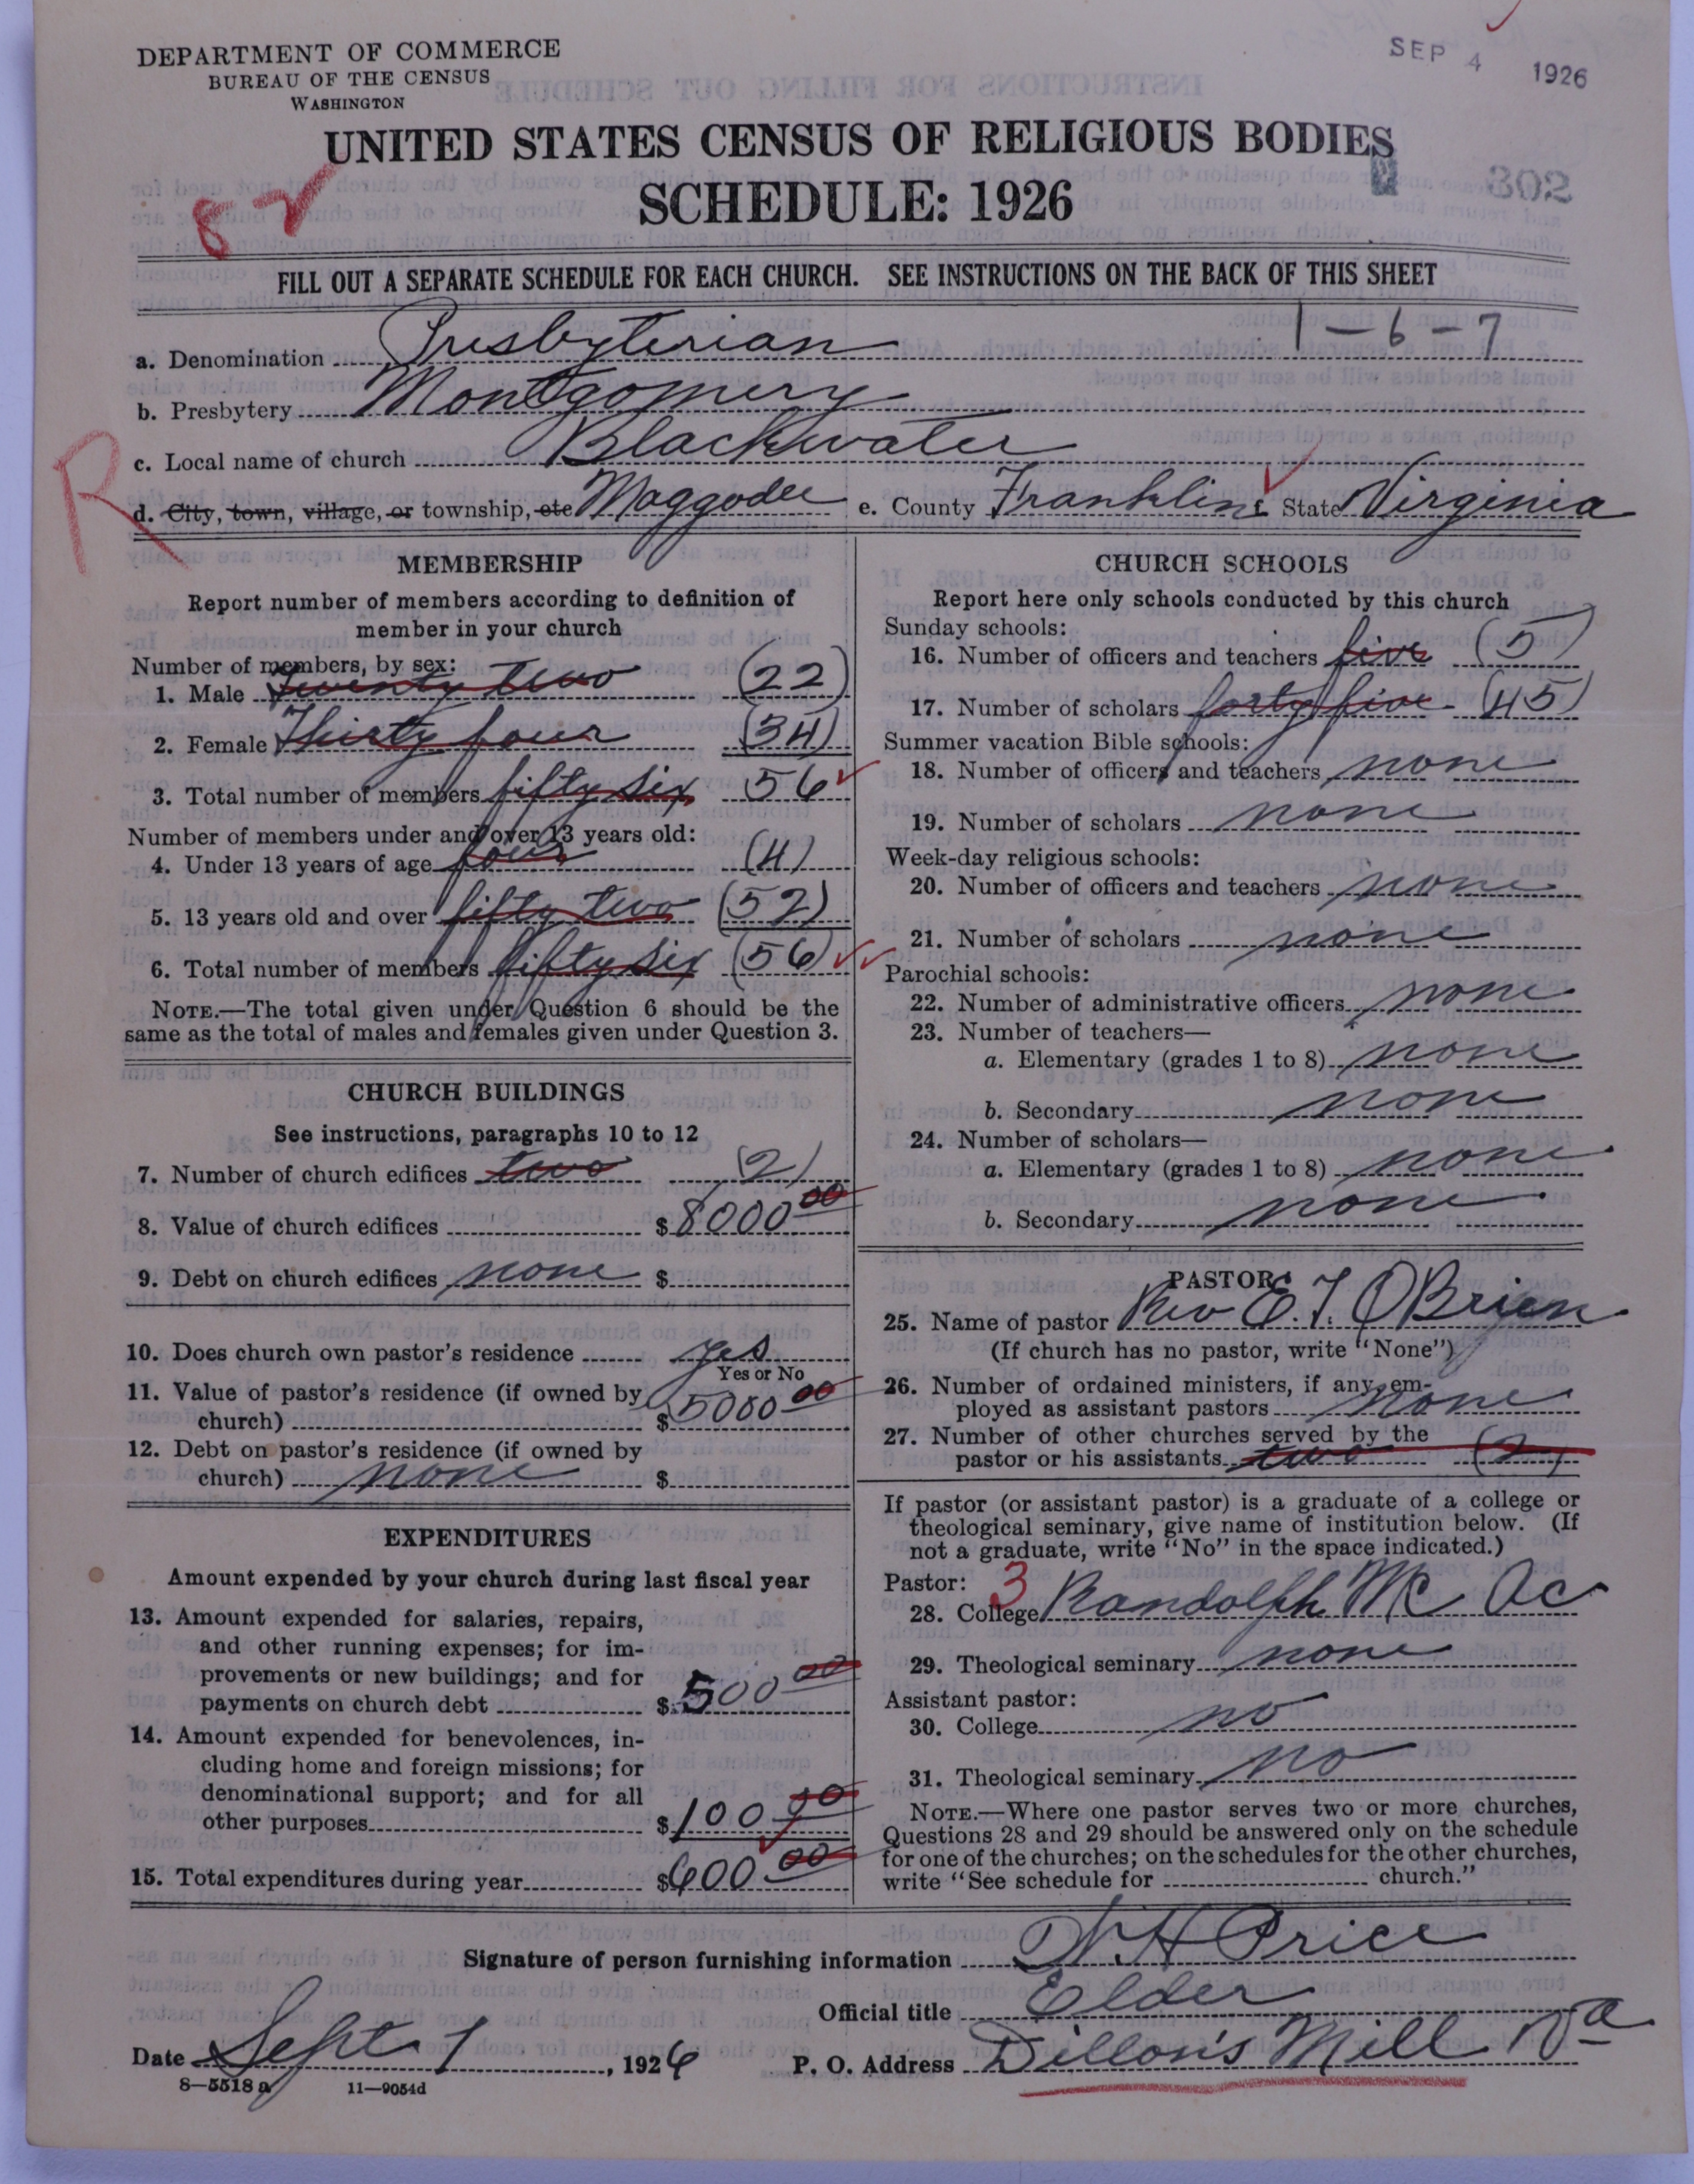 DEPARTMENT OF COMMERCE
BUREAU OF THE CENSUS
WASHINGTON
SEP 4 1926
UNITED STATES CENSUS OF RELIGIOUS BODIES
SCHEDULE: 1926
302
82
FILL OUT A SEPARATE SCHEDULE FOR EACH CHURCH. SEE INSTRUCTIONS ON THE BACK OF THIS SHEET
1-6-7
a. Denomination Presbyterian
b. Presbytery Montgomery
c. Local name of church Blackwater
R
d. City, town, village, or township, etc Maggodee e. County Franklin State Virginia
MEMBERSHIP
Report number of members according to definition of
member in your church
Number of members, by sex:
1. Male Twenty two (22)
2. Female Thirty four (34)
3. Total number of members fifty six 56
Number of members under and over 13 years old:
4. Under 13 years of age four (4)
5. 13 years old and over fifty two (52)
6. Total number of members fifty six (56)
NOTE.—The total given under Question 6 should be the
same as the total of males and females given under Question 3.
CHURCH BUILDINGS
See instructions, paragraphs 10 to 12
7. Number of church edifices two (2)
8. Value of church edifices $ 8000 00
9. Debt on church edifices none $
10. Does church own pastor's residence yes
Yes or No
11. Value of pastor's residence (if owned by
church) $ 5000 00
12. Debt on pastor's residence (if owned by
church) none $
EXPENDITURES
Amount expended by your church during last fiscal year
13. Amount expended for salaries, repairs,
and other running expenses; for im-
provements or new buildings; and for
payments on church debt $ 500 00
14. Amount expended for benevolences, in-
cluding home and foreign missions; for
denominational support; and for all
other purposes $ 100 00
15. Total expenditures during year $ 600 00
CHURCH SCHOOLS
Report here only schools conducted by this church
Sunday schools:
16. Number of officers and teachers five (5)
17. Number of scholars forty five (45)
Summer vacation Bible schools:
18. Number of officers and teachers none
19. Number of scholars none
Week-day religious schools:
20. Number of officers and teachers none
21. Number of scholars none
Parochial schools:
22. Number of administrative officers none
23. Number of teachers—
a. Elementary (grades 1 to 8) none
b. Secondary none
24. Number of scholars—
a. Elementary (grades 1 to 8) none
b. Secondary none
PASTOR
25. Name of pastor Rev E. T. OBrien
(If church has no pastor, write "None")
26. Number of ordained ministers, if any, em-
ployed as assistant pastors none
27. Number of other churches served by the
pastor or his assistants two (2)
If pastor (or assistant pastor) is a graduate of a college or
theological seminary, give name of institution below. (If
not a graduate, write "No" in the space indicated.)
Pastor: 3
28. College Randolph Mc Ac
29. Theological seminary none
Assistant pastor:
30. College no
31. Theological seminary no
NOTE.—Where one pastor serves two or more churches,
Questions 28 and 29 should be answered only on the schedule
for one of the churches; on the schedules for the other churches,
write "See schedule for church."
Signature of person furnishing information H Price
Official title Elder
Date Sept 1, 1926 P. O. Address Dillon's Mill Va
8—5518 a 11—9054d